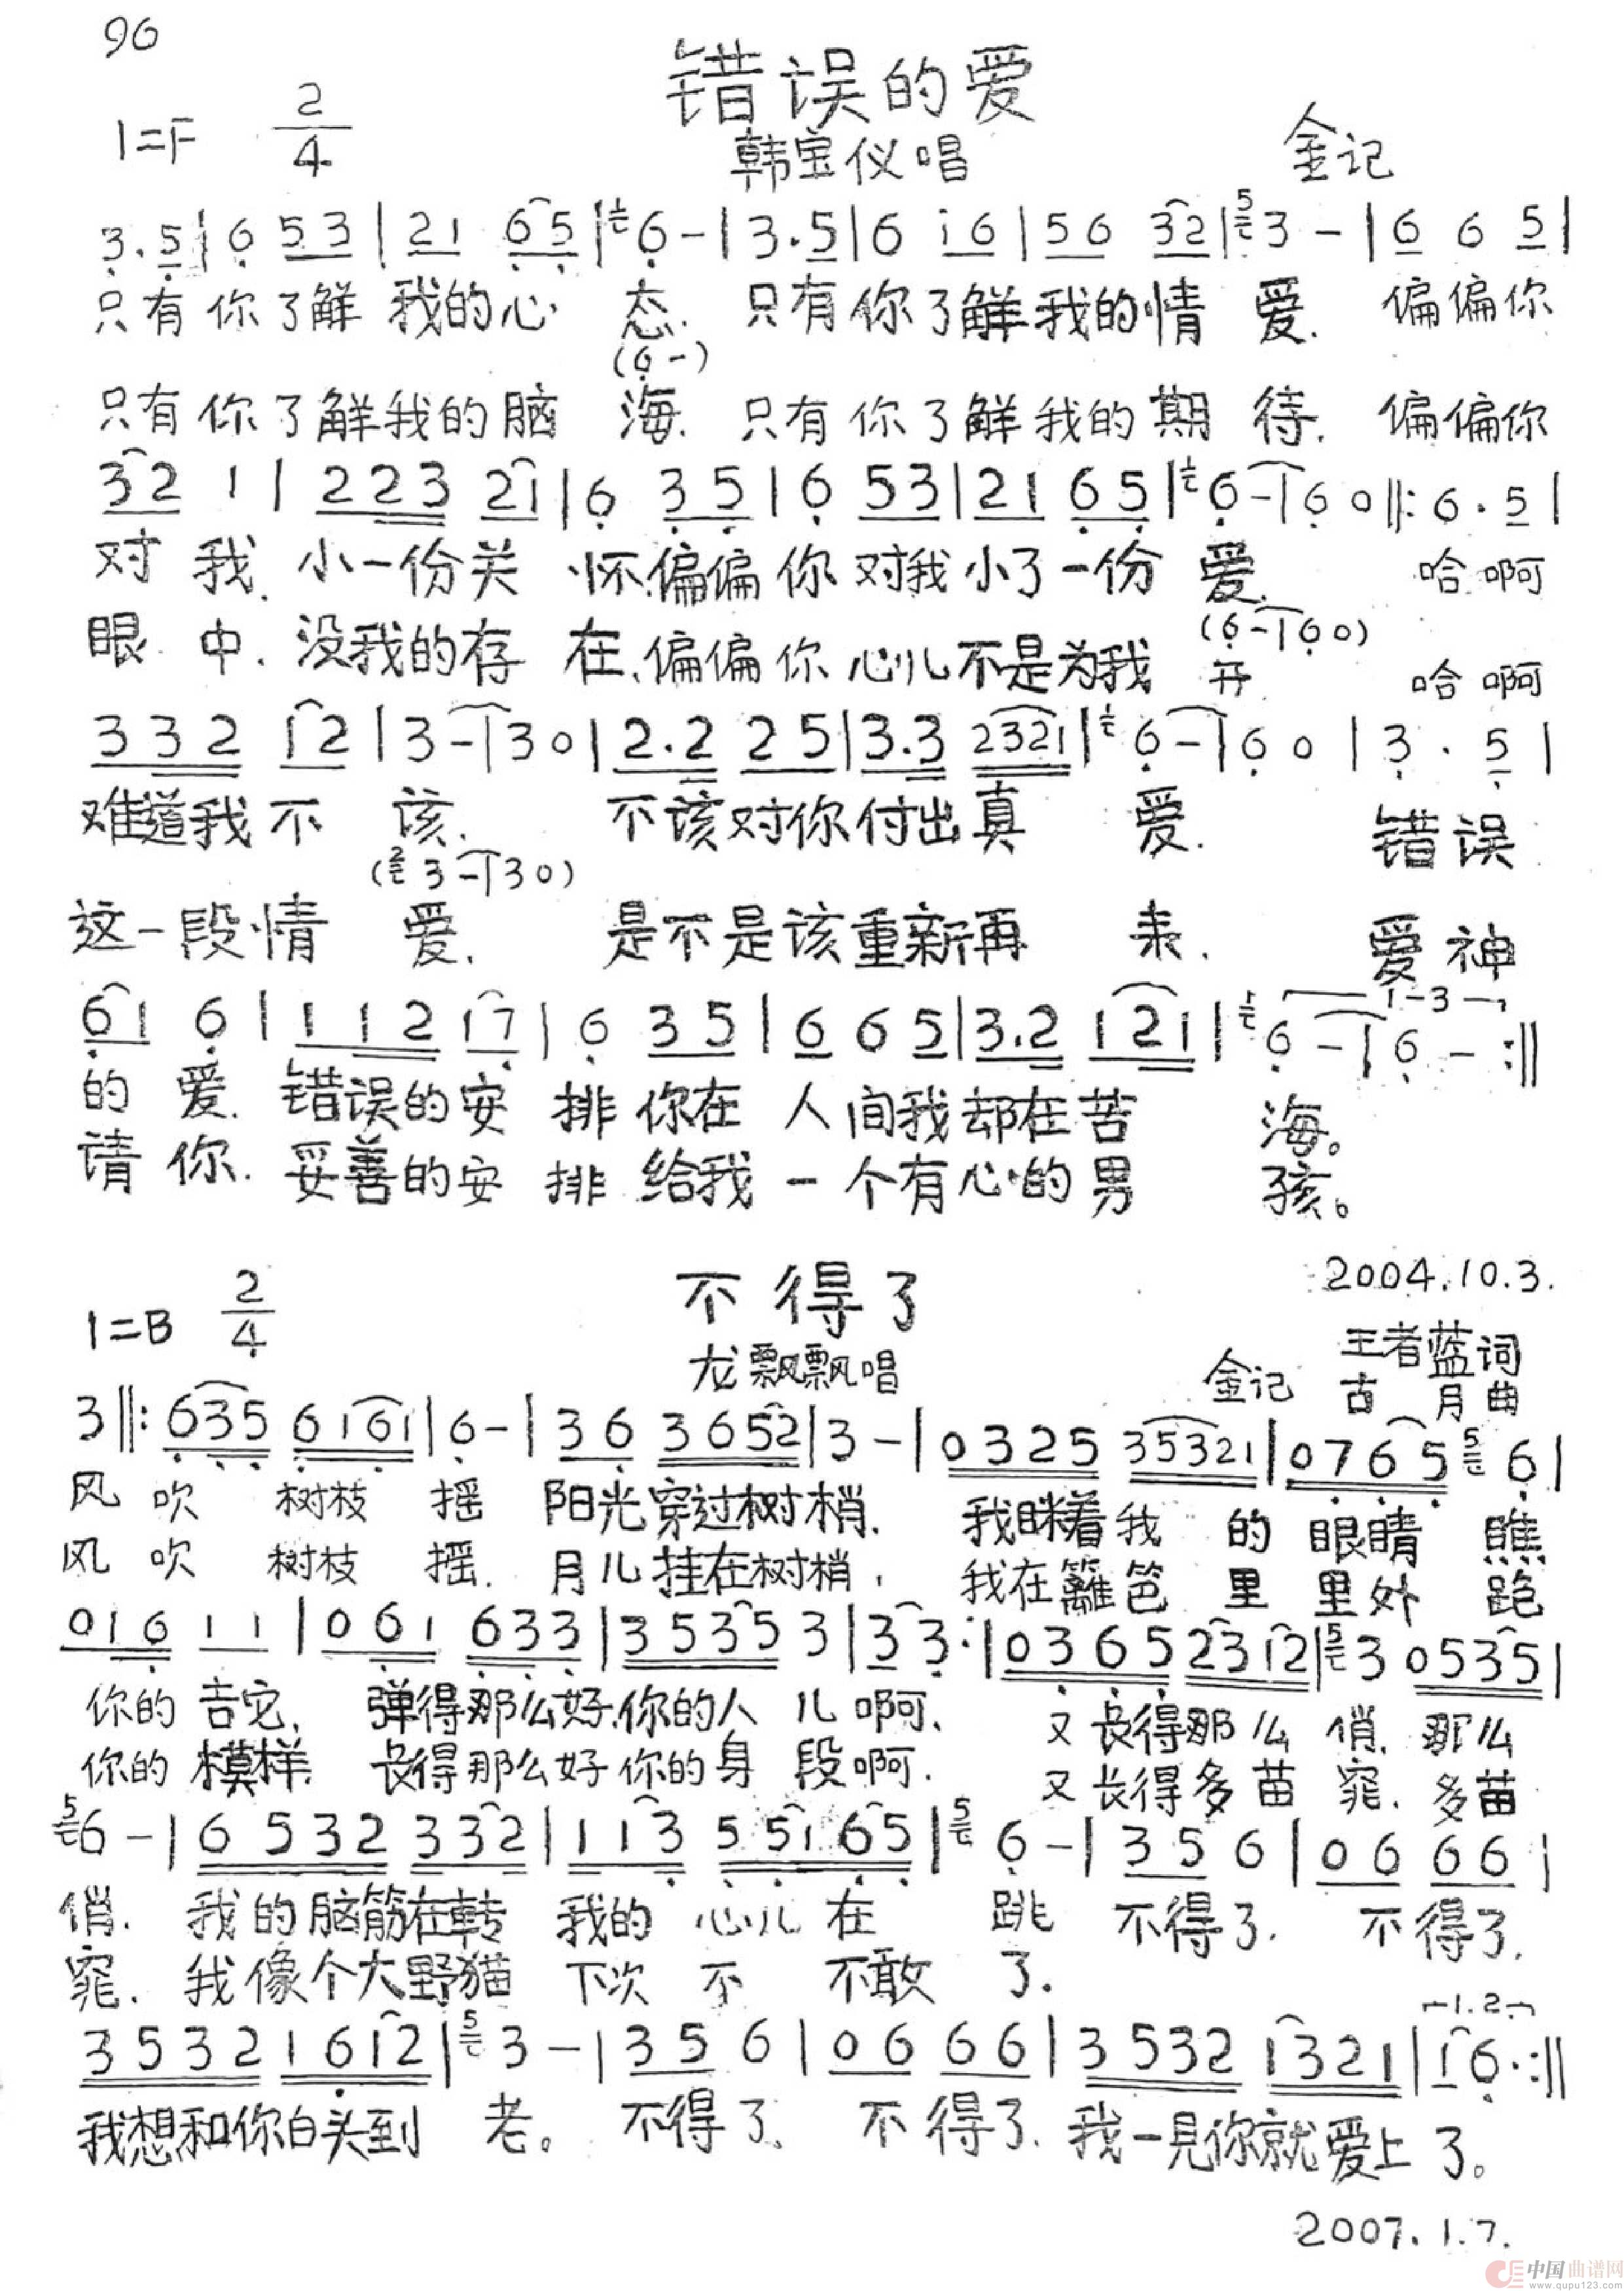 96
错误的爱
1=F 2/4
韩宝仪唱 金记
3.5|6 53|21 65|6-|3.5|6 i6|56 32|3-|6 6 5|
只有你了解我的心态.只有你了解我的情爱.偏偏你
(6-)
只有你了解我的脑海.只有你了解我的期待.偏偏你
32 1|223 21|6 35|6 53|21 65|6-|60‖:6.5|
对我.小一份关怀.偏偏你对我小了一份爱.哈啊
(6-|60)
眼中.没我的存在.偏偏你心儿不是为我开 哈啊
332 12|3-|30|2.2 25|3.3 2321|6-|60|3.5|
难道我不该.不该对你付出真爱.错误
(3-|30)
这一段情爱.是不是该重新再来.爱神
61 6|112 17|6 35|6 6 5|3.2 121|6-|6-:‖
1-3
的爱.错误的安排你在人间我却在苦海。
请你.妥善的安排给我一个有心的男孩。
2004.10.3.
不得了
1=B 2/4
龙飘飘唱 金记 王者蓝词
古月曲
3‖:635 6161|6-|36 3652|3-|0325 35321|0765 6|
风吹树枝摇 阳光穿过树梢.我眯着我的眼睛瞧
风吹树枝摇.月儿挂在树梢,我在篱笆里里外跑
016 11|061 633|3535 3|33:|0365 2312|3 0535|
你的吉它,弹得那么好.你的人儿啊.又长得那么俏.那么
你的模样.长得那么好你的身段啊.又长得多苗窕.多苗
6-|6532 332|113 55165|6-|35 6|06 66|
俏.我的脑筋在转 我的心儿在跳 不得了.不得了.
窕.我像个大野猫 下次不不敢了.
1.2.
3532 1612|3-|35 6|06 66|3532 1321|16.:‖
我想和你白头到老。不得了、不得了.我一見你就爱上了。
2007.1.7.
中国曲谱网
www.qupu123.com